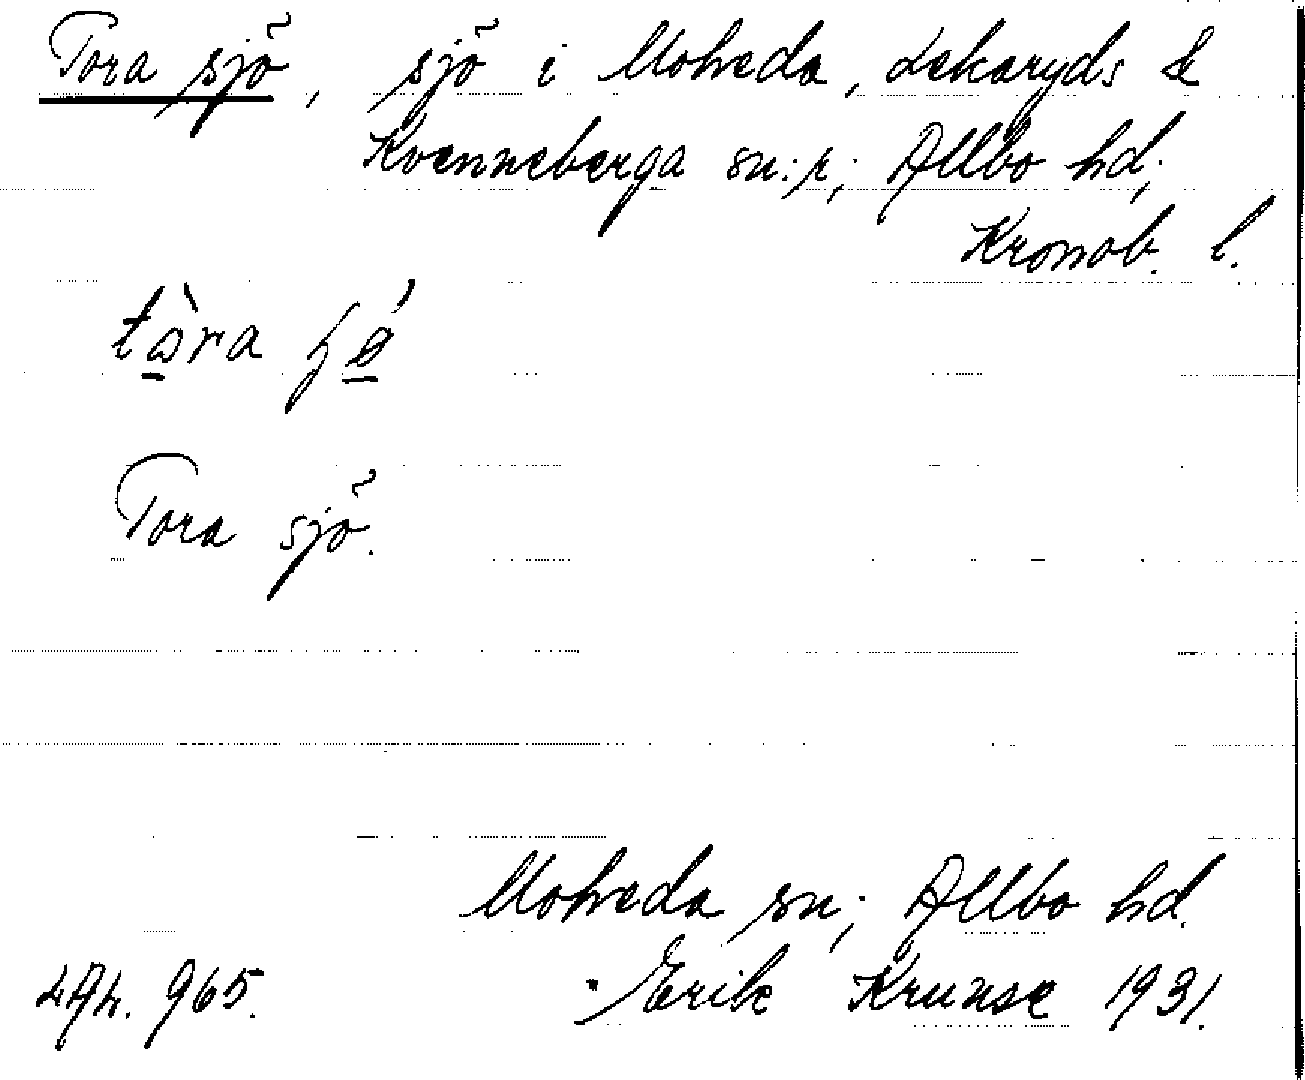 Tora sjö, sjö i Moheda, Lekaryds &
Kvenneberga sn:r; Allbo hd;
Kronob. l.
tòra
Tora sjö.
Moheda sn; Allbo hd.
LAL. 965. Erik Krunse 1931.